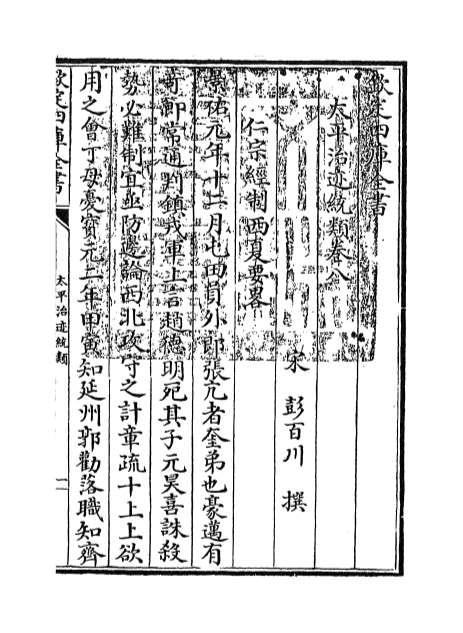 欽定四庫全書
太平治迹統類卷八
宋 彭百川 撰
仁宗經制西夏要畧
景祐元年十二月屯田員外郎張亢者奎弟也豪邁有
奇節常通判鎮戎軍上言趙德明死其子元昊喜誅殺
勢必難制宜亟防邊論西北攻守之計章疏十上上欲
用之會丁母憂寶元二年甲寅知延州郭勸落職知齊
欽定四庫全書
太平治迹統類
一